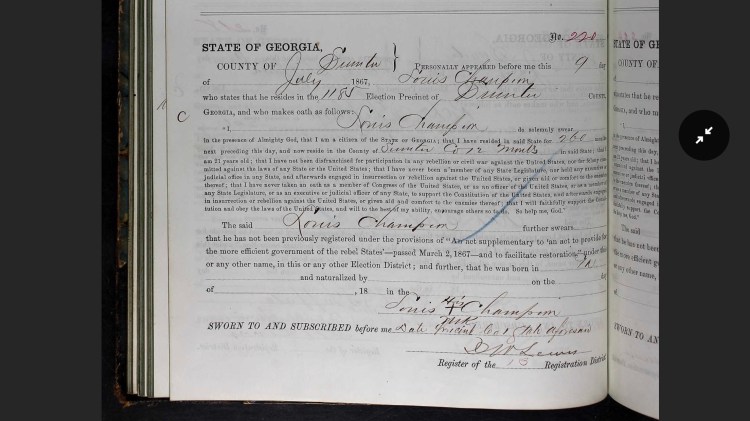 No. 220
STATE OF GEORGIA,
COUNTY OF Sumter } PERSONALLY APPEARED before me this 9 day
of July 1867, Louis Champion
who states that he resides in the 1185 Election Precinct of Sumter COUNTY,
GEORGIA, and who makes oath as follows:
C
"I, Louis Champion do solemnly swear
in the presence of Almighty God, that I am a citizen of the STATE OF GEORGIA; that I have resided in said State 260 months
next preceding this day, and now reside in the County of Sumter Co 12 months in said State; that I
am 21 years old; that I have not been disfranchised for participation in any rebellion or civil war against the United States, nor for felony com-
mitted against the laws of any State or the United States; that I have never been a member of any State Legislature, nor held any executive or
judicial office in any State, and afterwards engaged in insurrection or rebellion against the United States, or given aid or comfort to the enemies
thereof; that I have never taken an oath as a member of Congress of the United States, or as an officer of the United States, or as a member of
any State Legislature, or as an executive or judicial officer of any State, to support the Constitution of the United States, and afterwards engaged
in insurrection or rebellion against the United States, or given aid or comfort to the enemies thereof; that I will faithfully support the Consti-
tution and obey the laws of the United States, and will to the best of my ability, encourage others so to do. So help me, God."
The said Louis Champion further swears
that he has not been previously registered under the provisions of "An act supplementary to 'an act to provide for
the more efficient government of the rebel States'—passed March 2, 1867—and to facilitate restoration," under this
or any other name, in this or any other Election District; and further, that he was born in
and naturalized by on the day
of , 18 in the
Louis his X mk Champion
SWORN TO AND SUBSCRIBED before me Date Precinct Co & State aforesaid
Lewis
Register of the 13 Registration District
STATE OF GE
COUNTY OF